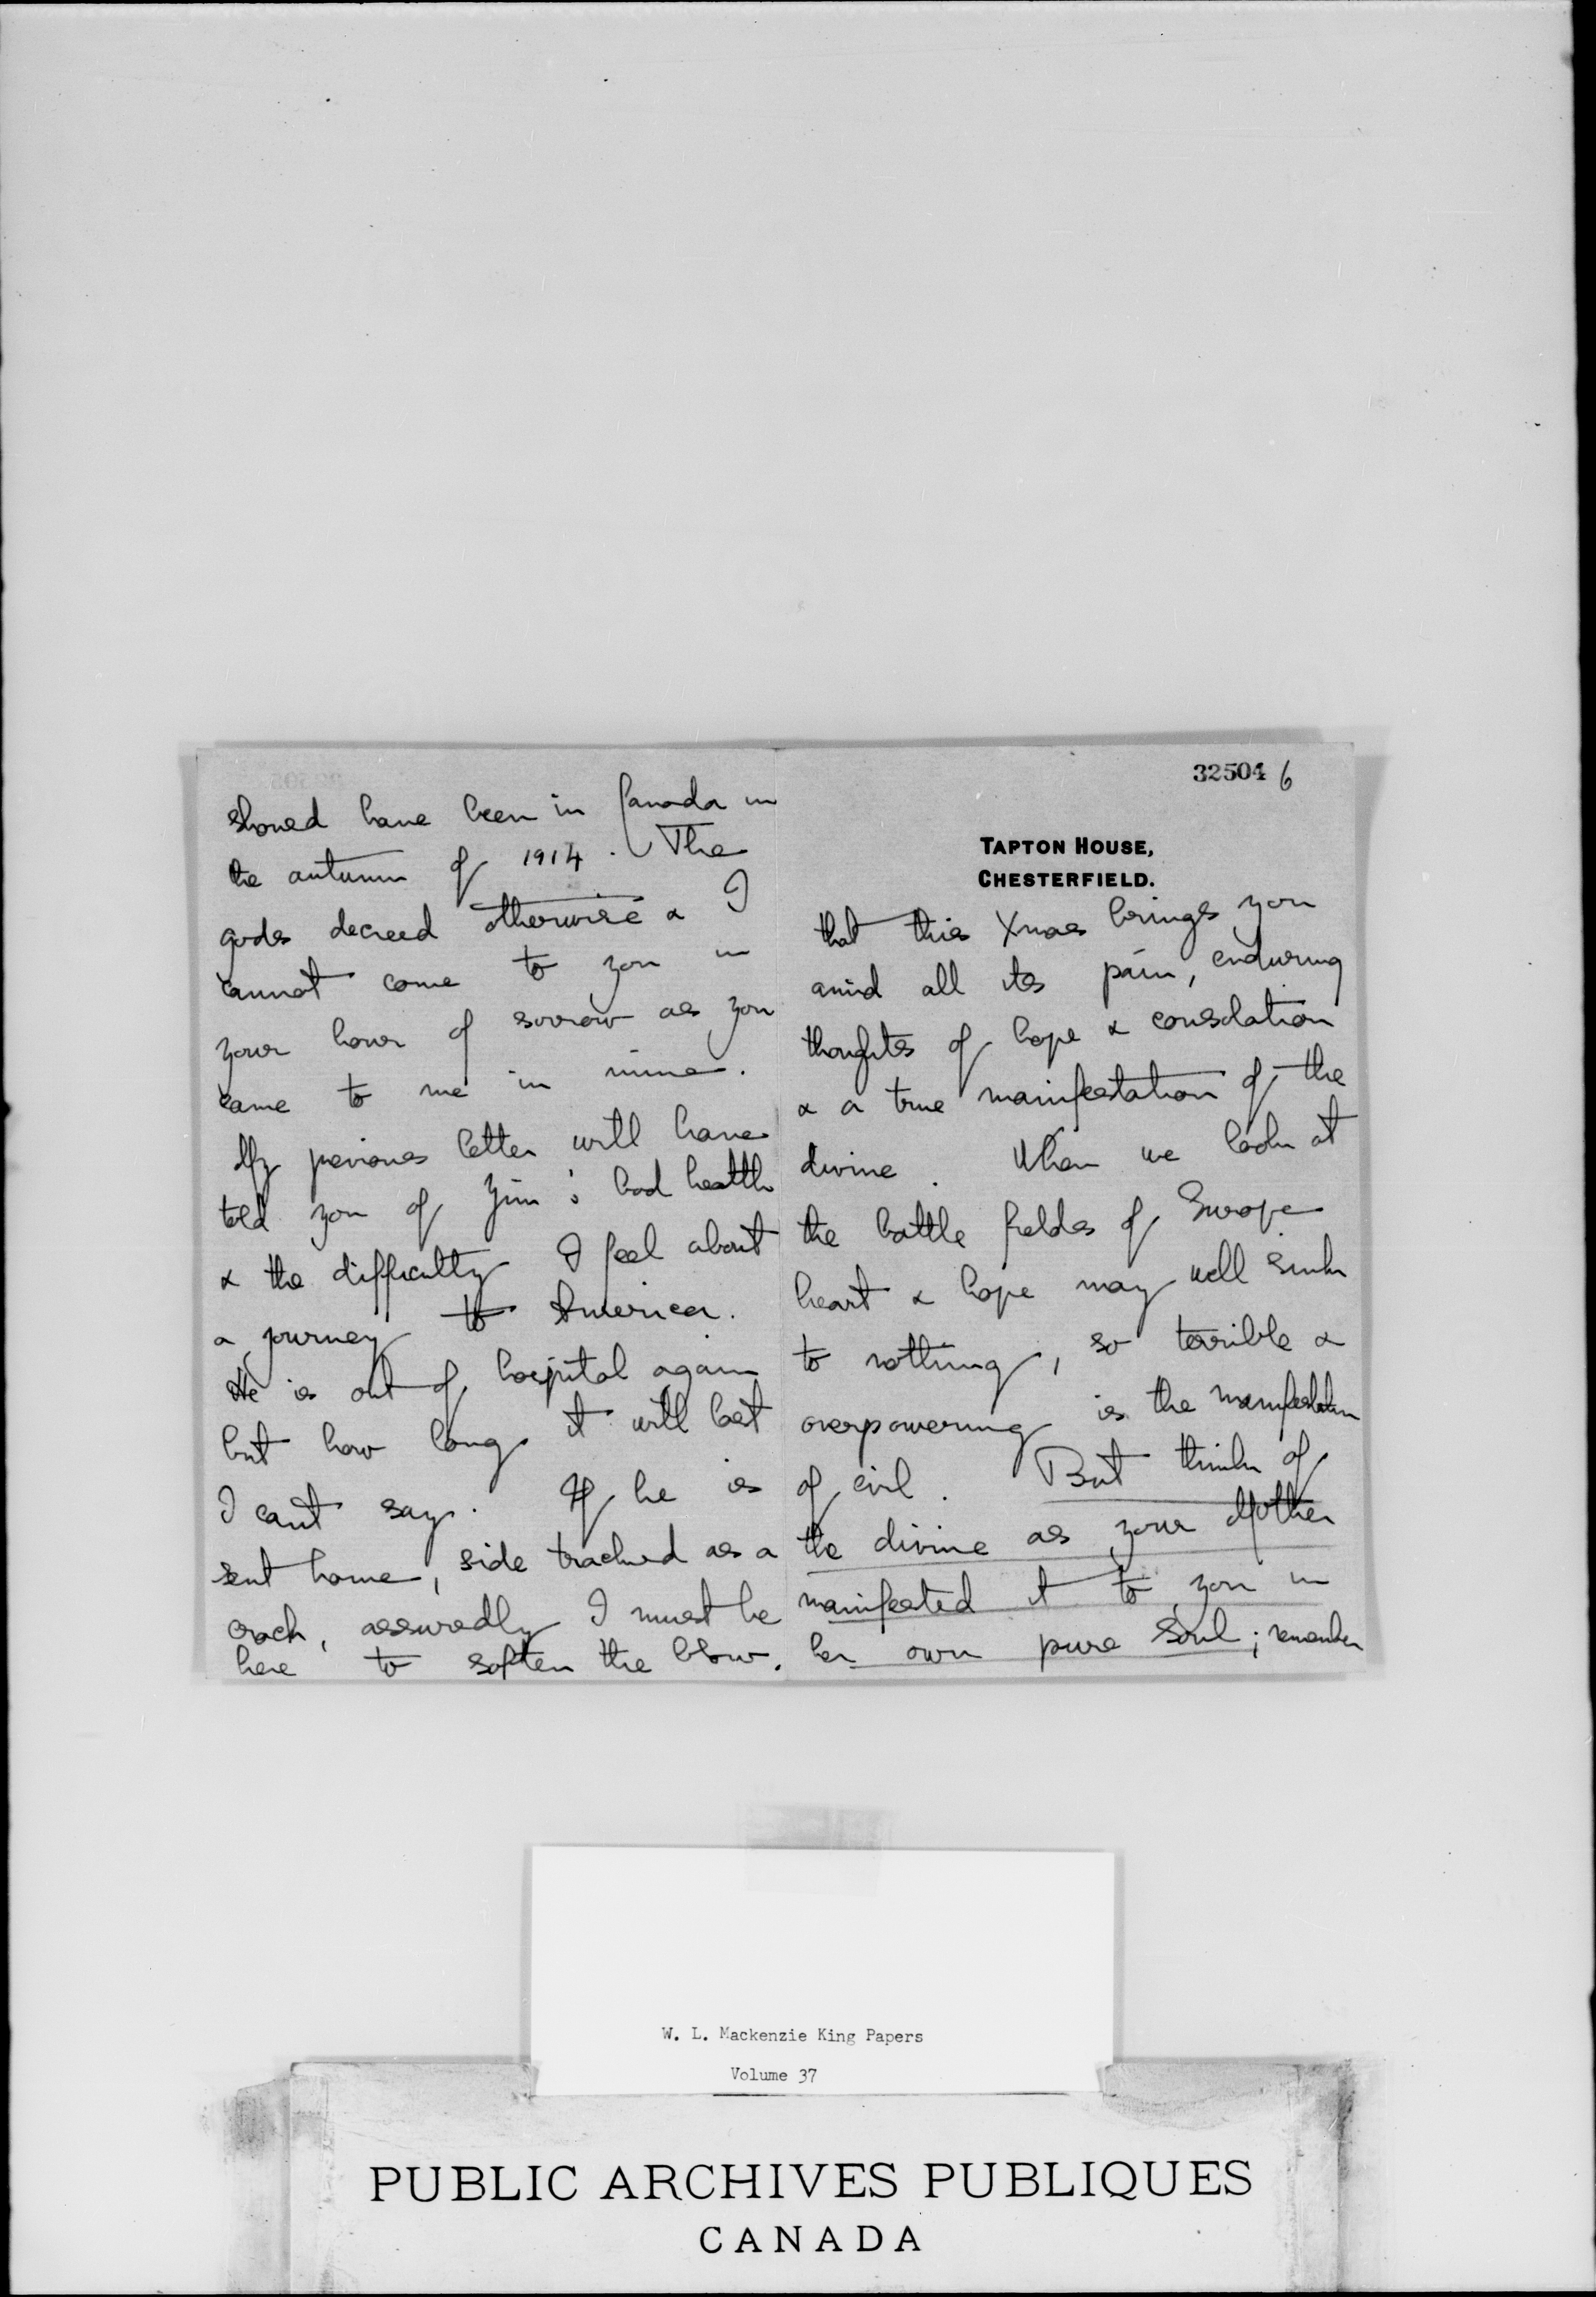 should have been in Canada in
the autumn of 1914. The
gods decreed otherwise & I
cannot come to you in
your hour of sorrow as you
came to me in mine.
My previous letter will have
told you of Jim's bad health
& the difficulty I feel about
a journey to America.
He is out of hospital again
but how long it will last
I can't say. If he is
sent home, side tracked as a
crock, assuredly I must be
here to soften the blow.
32504 6
TAPTON HOUSE,
CHESTERFIELD.
that this Xmas brings you
amid all its pain, enduring
thoughts of hope & consolation
& a true manifestation of the
divine. When we look at
the battle fields of Europe
heart & hope may well sink
to nothing, so terrible &
overpowering is the manifestation
of evil. But think of
the divine as your Mother
manifested it to you in
her own pure soul; remember
W. L. Mackenzie King Papers
Volume 37
PUBLIC ARCHIVES PUBLIQUES
CANADA